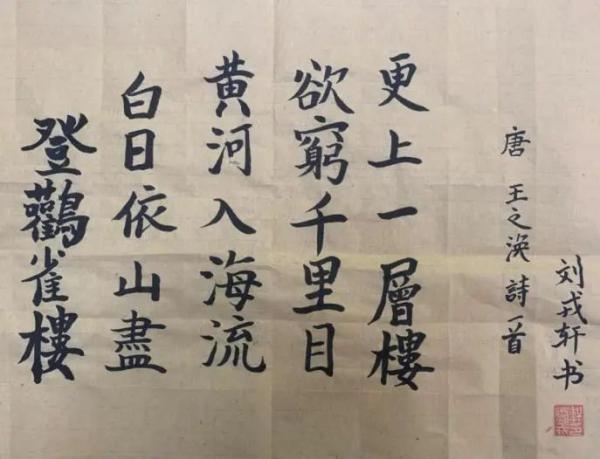 登鸛雀樓
白日依山盡
黄河入海流
欲窮千里目
更上一層樓
唐 王之渙 詩一首
刘戎轩书